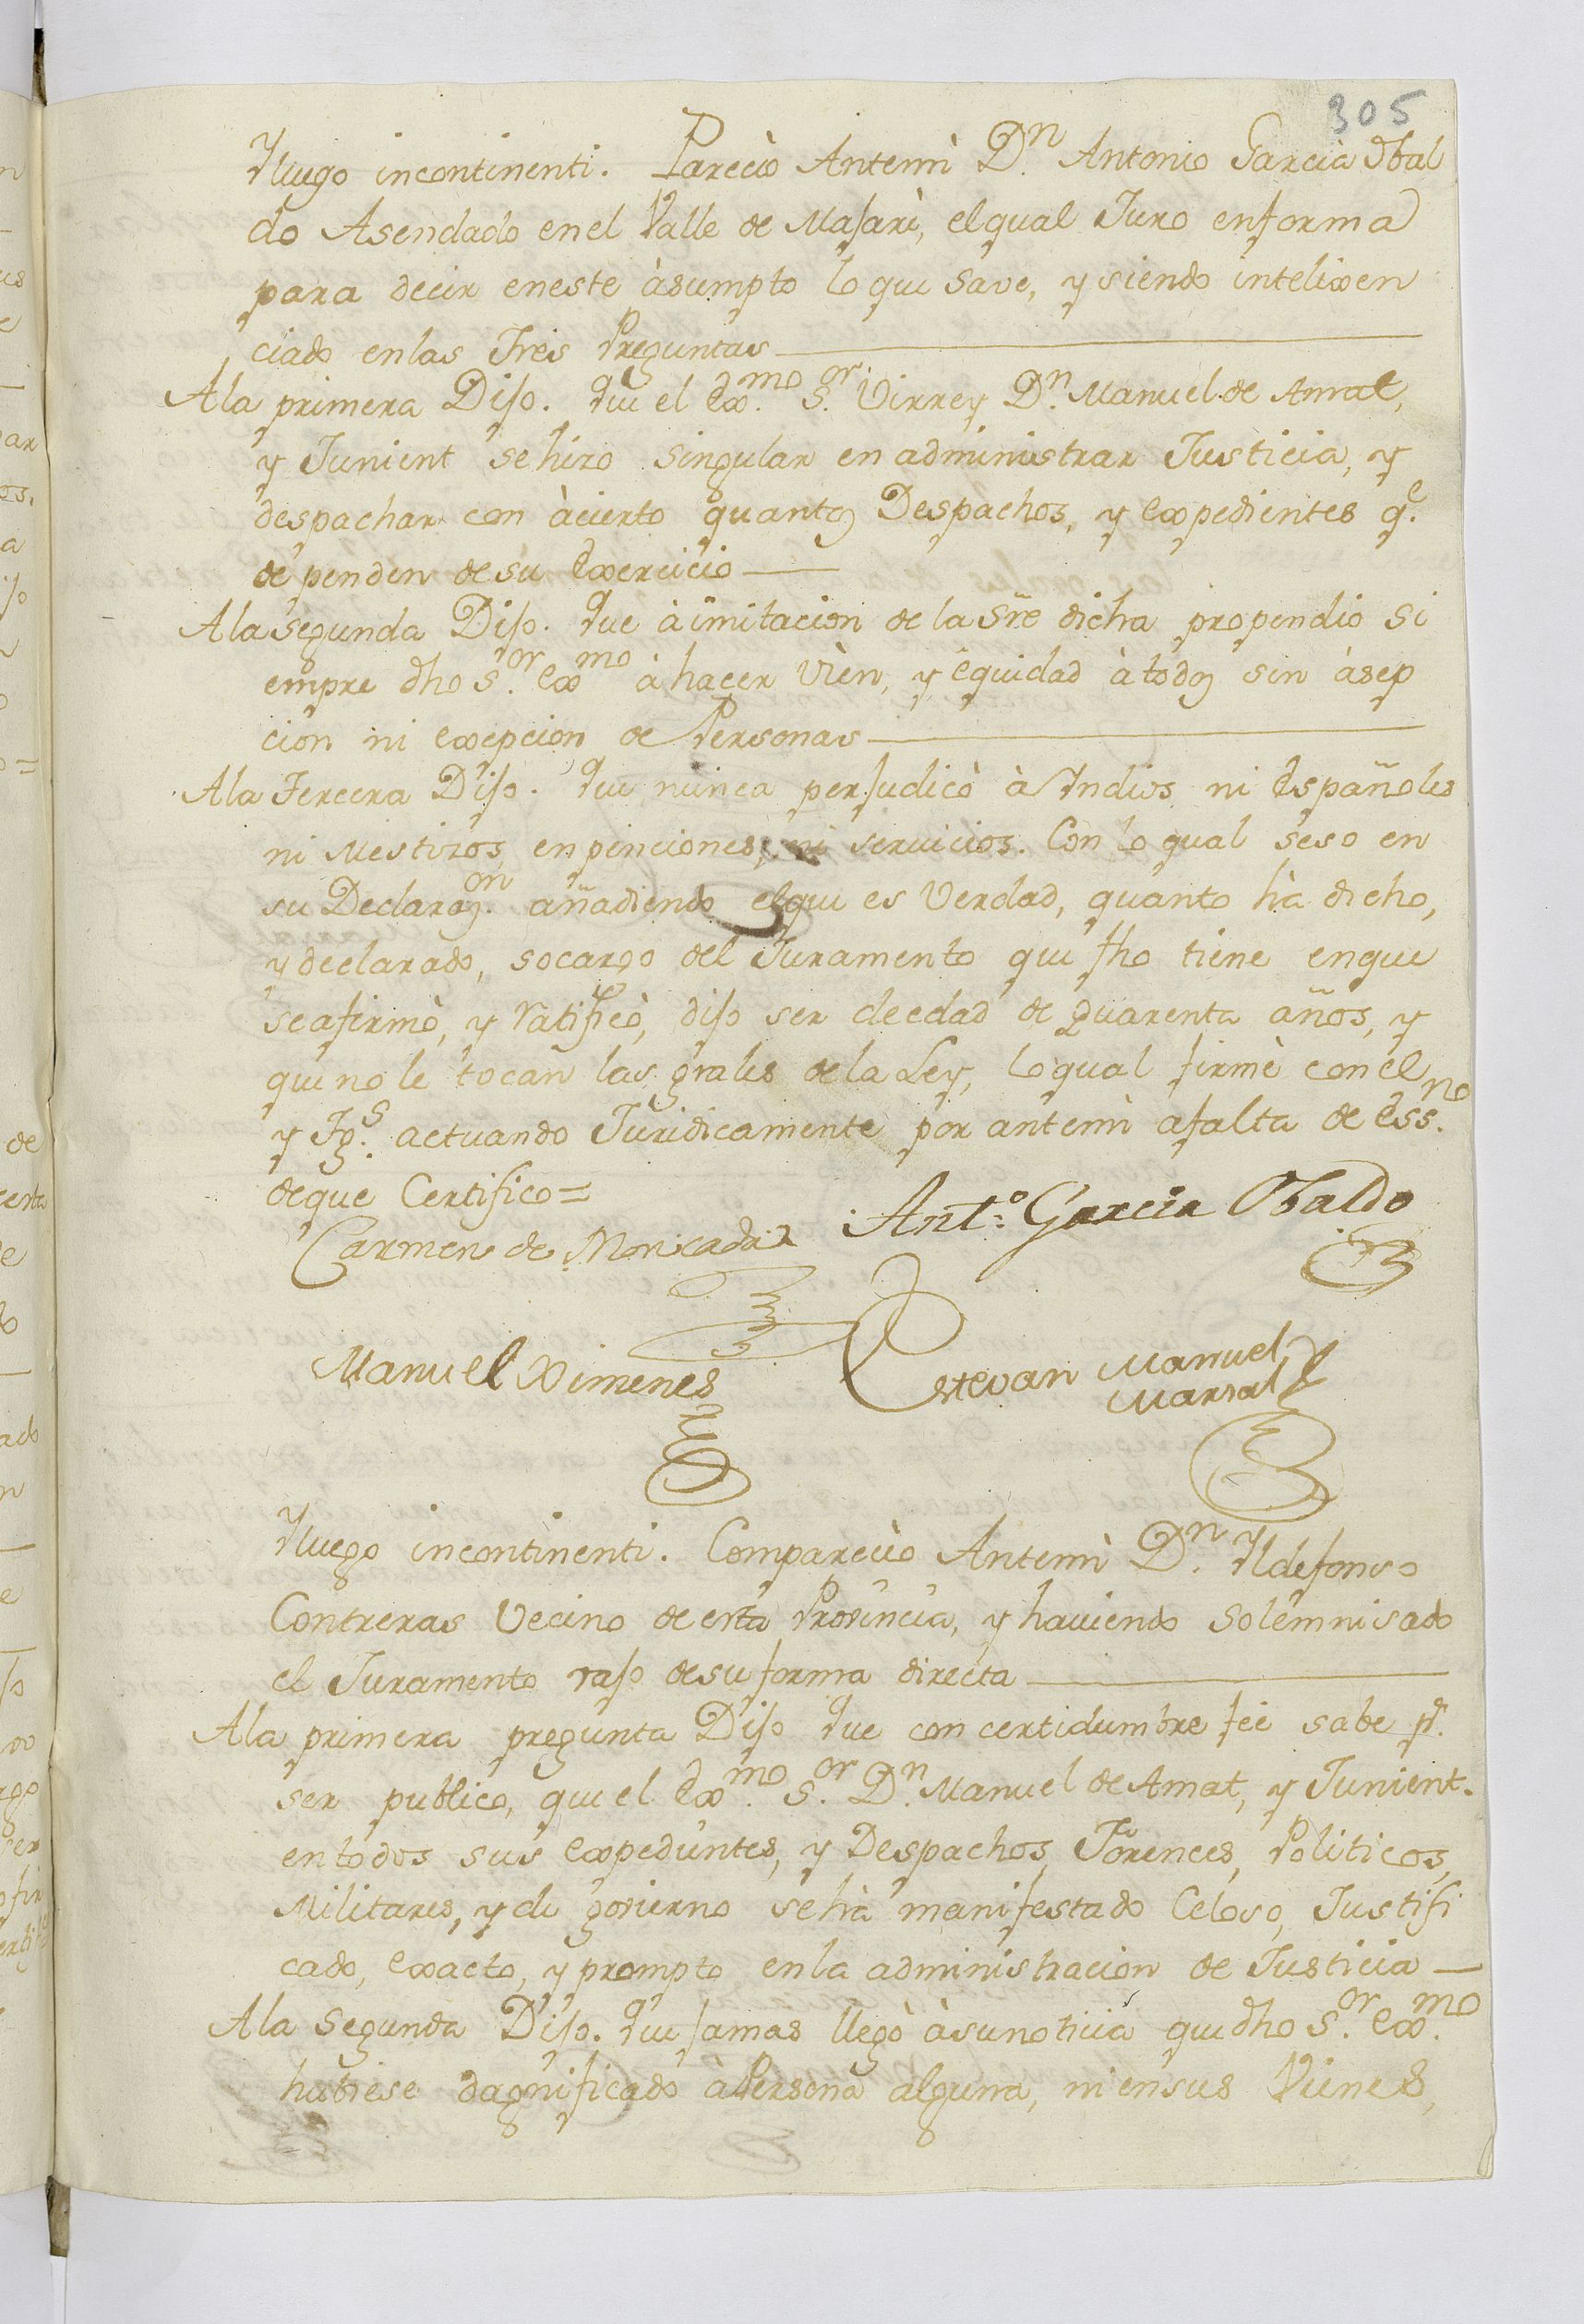 305
Yluego incontinenti. Parecio Antemi D.n Antonio Garcia Obal
do Asendado en el Valle de Majari, el qual Juro enforma
para decir eneste àsumpto lo que save, y siendo intelixen
ciado enlas Tres Preguntas
Ala primera Dijo. Que el Exmo. S.or Virrey D.n Manuel de Amat,
y Junient se hizo singular en administrar Justicia, y
despachar con àcierto quantos Despachos, y Expedientes q.e
de penden de su Exercicio
Ala segunda Dijo. Que à imitacion de la Sre dicha propendio si
empre dho S.or Exmo à hacer Vien, y equidad à todos sin àsep
cion ni Excepcion de Personas
Ala Tercera Dijo. Que nunca perjudicò à Yndios ni Españoles
ni Mestizos, en penciones, ni servicios. Con lo qual seso en
su Declaraz.on añadiendo el que es Verdad, quanto hà dicho,
y declarado, socargo del Juramento que fho tiene enque
seafirmò, y ratificò, dijo ser deedad de Quarenta años, y
que no le tocan las grales dela Ley, lo qual firmè con èl
y Tg.s actuando Juridicamente por antemi afalta de Ess.no
deque Certifico=
Carmen de Moncada Ant.o Garcia Obaldo
Manuel Ximenes Estevan Manuel
Marsal
Yluego incontinenti. Comparecio Antemi D.n Yldefonso
Contreras Vecino de esta Provincia, y haviendo solemnisado
el Juramento rajo desu forma directa
Ala primera pregunta Dijo Que con certidumbre feè sabe pr.
ser publico, que el Exmo. S.or D.n Manuel de Amat, y Junient.
entodos sus Expedientes, y Despachos, Forences, Politicos,
Militares, y de govierno sehà manifestado Celoso, Justifi
cado, Exacto, y prompto enla administracion de Justicia
Ala Segunda Dijo. Que jamas llegò àsunoticia que dho S.or Exmo.
hubiese dagnificado à Persona alguna, ni ensus Vienes,